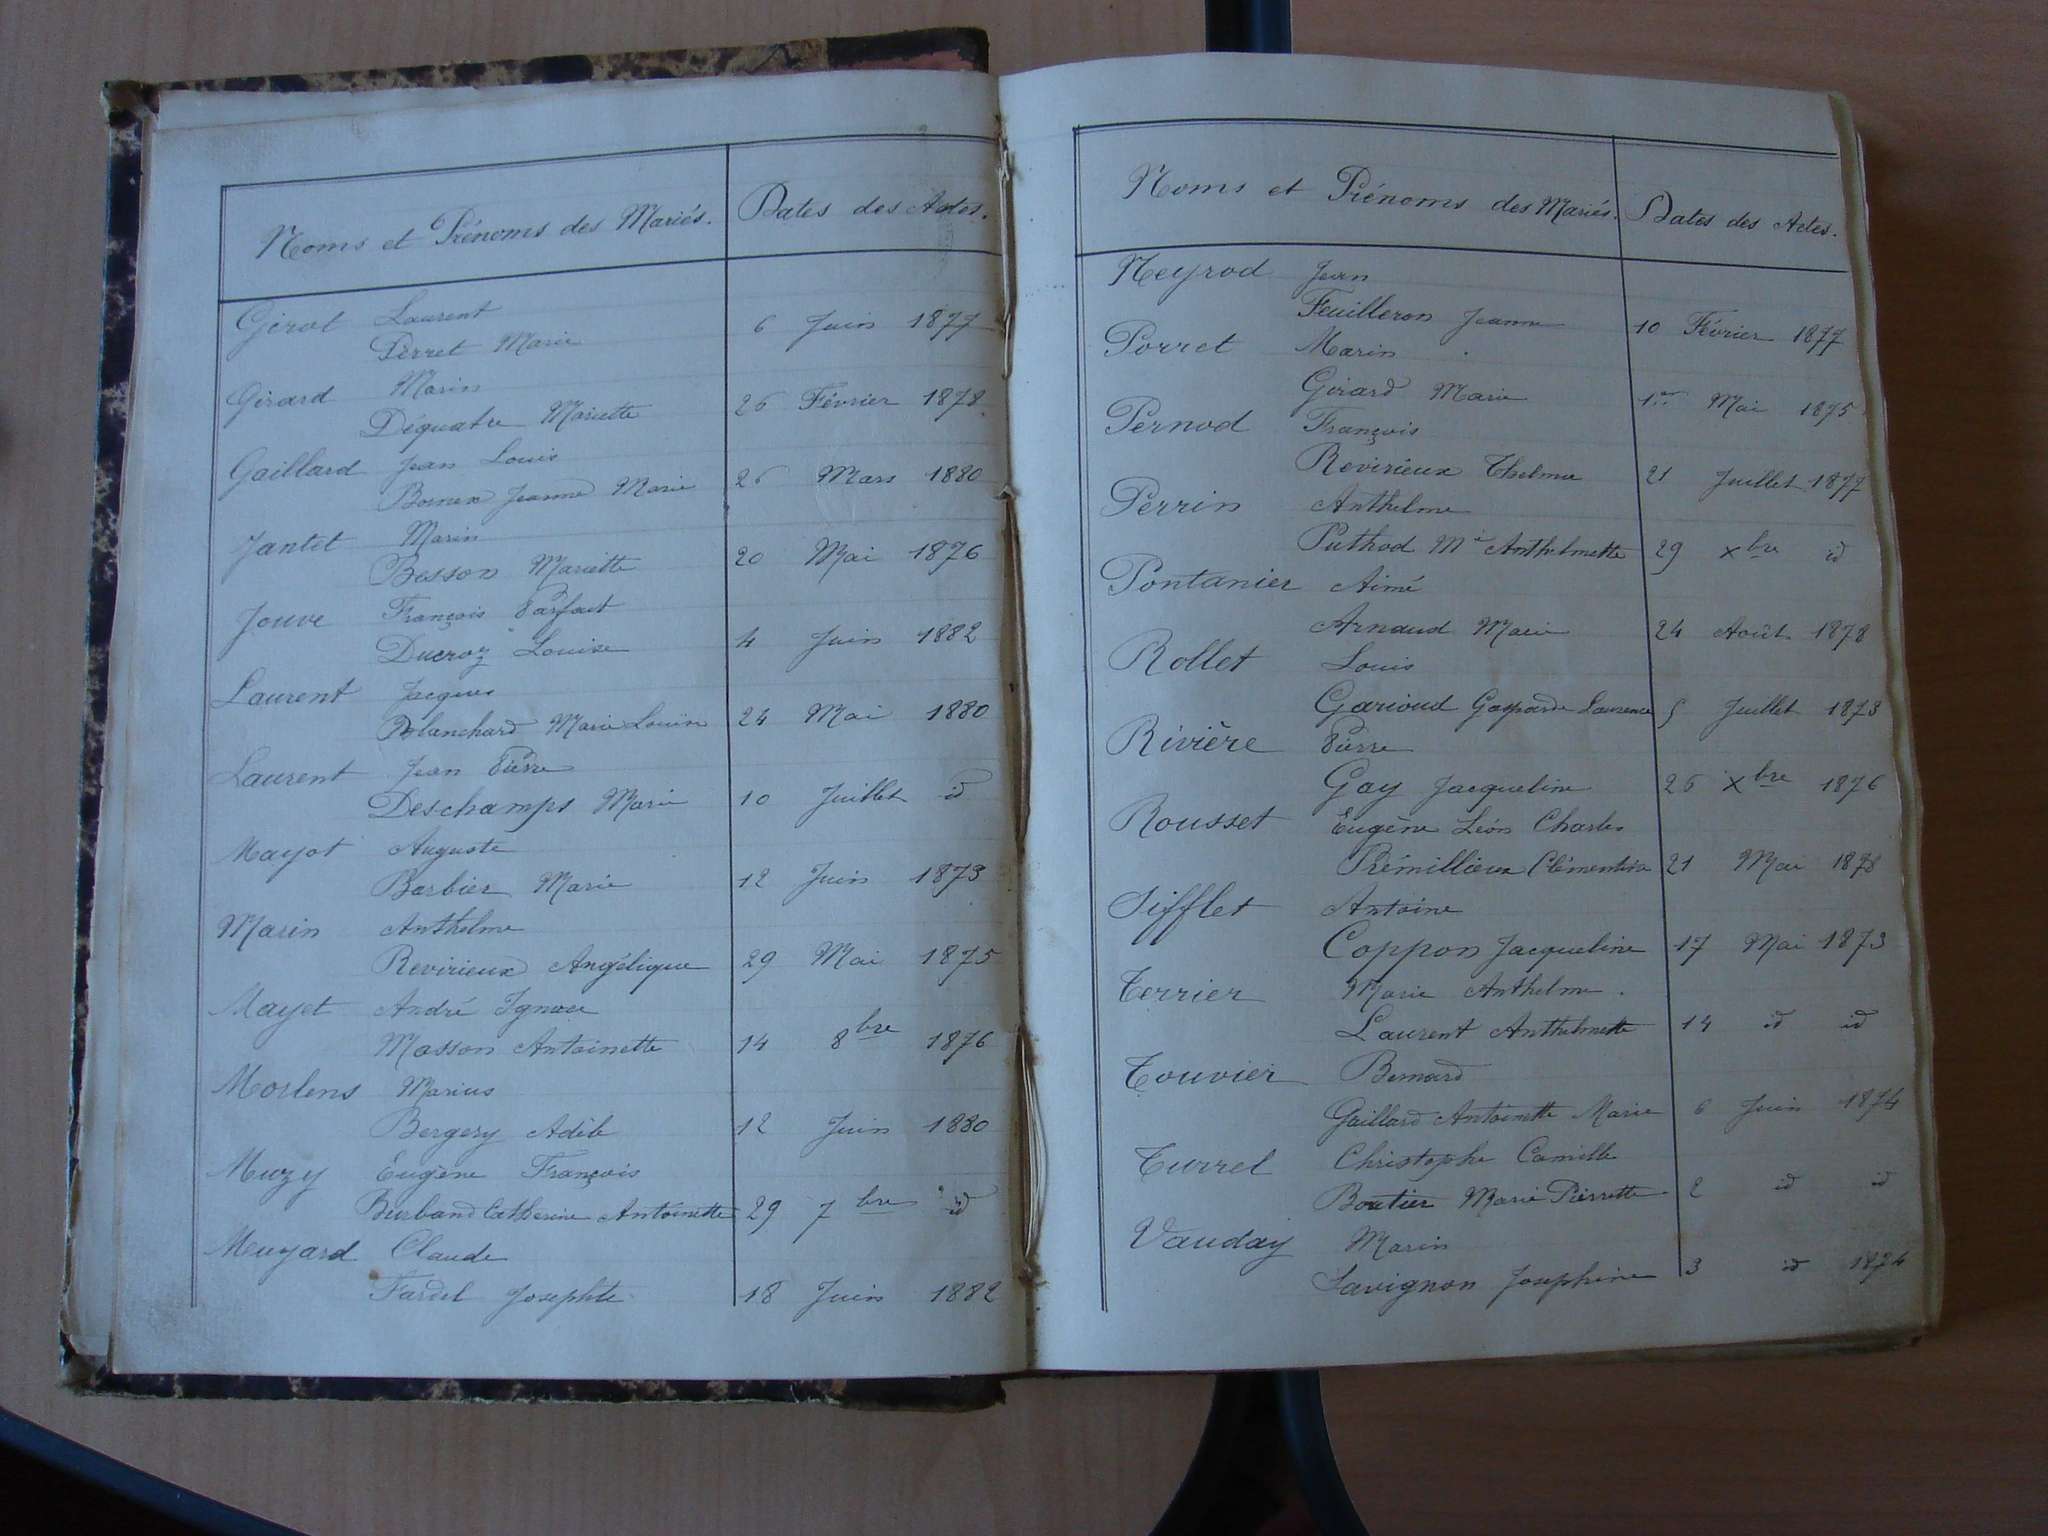 Noms et Prénoms des Mariés. Dates des Actes.
Girot Laurent
Perret Marie 6 Juin 1877
Girard Marin
Déquatre Mariette 26 Février 1878
Gaillard Jean Louis
Jeanne Marie 26 Mars 1880
Jantet Marin
Besson Mariette 20 Mai 1876
Jouve François Parfait
Ducroz Louise 4 Juin 1882
Laurent Jacques
Blanchard Marie Louise 24 Mai 1880
Laurent Jean Pierre
Deschamps Marie 10 Juillet id
Mayot Auguste
Barbier Marie 12 Juin 1873
Marin Anthelme
Revirieux Angélique 29 Mai 1875
Mayet André Ignace
Masson Antoinette 14 8bre 1876
Morlens Marius
Bergery Adèle 12 Juin 1880
Muzy Eugène François
Burband Catherine Antoinette 29 7bre id
Muyard Claude
Fardel Josephte 18 Juin 1882
Noms et Prénoms des Mariés. Dates des Actes.
Neyrod Jean
Feuilleron Jeanne 10 Février 1877
Porret Marin
Girard Marie 1er Mai 1875
Pernod François
Revirieux Thelme 21 Juillet 1877
Perrin Anthelme
Puthod Mie Anthelmette 29 xbre id
Pontanier Aimé
Arnaud Marie 24 Août 1878
Rollet Louis
Garioud Gasparde Laurence 5 Juillet 1873
Rivière Pierre
Gay Jacqueline 26 Xbre 1876
Rousset Eugène Léon Charles
Prémillieux Clémentine 21 Mai 1878
Sifflet Antoine
Coppon Jacqueline 17 Mai 1873
Terrier Marie Anthelme.
Laurent Anthelmette 14 id id
Touvier Bernard
Gaillard Antoinette Marie 6 Juin 1874
Turrel Christophe Camille
Boutier Marie Pierrette 2 id id
Vauday Marin
Savignon Josephine 3 id 1874